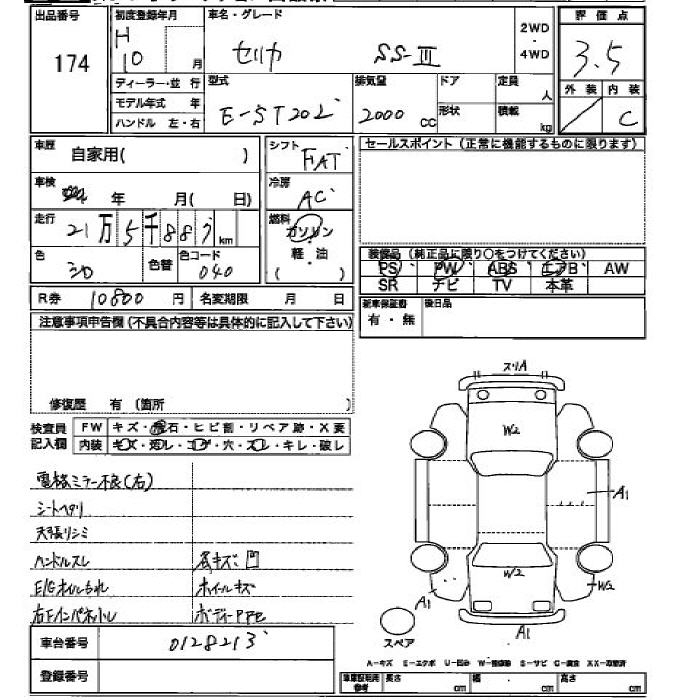 出品番号 初度登録年月 車名・グレード 2WD・4WD 評価点
174 H10月 セリカ SS-Ⅲ 3.5
ディーラー・並行 型式 排気量 ドア 定員 人 外装 内装
モデル年式 年 E-ST202 2000cc 形状 積載 kg C
ハンドル 左・右
車歴 自家用( ) シフト FAT セールスポイント(正常に機能するものに限ります)
車検 年 月( 日) 冷房 AC
走行 21万5千88 km 燃料 ガソリン・軽・油 ( )
色 シロ 色替 色コード 040
装備品(純正品に限り○をつけてください)
PS PW ABS エアB AW
SR ナビ TV 本革
R券 10800円 名変期限 月 日 新車保証書 有・無 後日品
注意事項申告欄(不具合内容等は具体的に記入して下さい)
修復歴 有(箇所 )
検査員記入欄 FW キズ・飛石・ヒビ割・リペア跡・X要
内装 キズ・汚レ・コゲ・穴・スレ・キレ・破レ
電格ミラー不良(右)
シートヘタリ
天張リシミ
ハンドルスレ 尾キズ凹
E/Gオイルもれ ホイールキズ
ボデーP
スリA
W2
A1
W2
W2
A1
A1
スペア
車台番号 0128213
登録番号
A-キズ E-エクボ U-凹み S-サビ C-腐食 XX-交換済
車庫証明用参考 長さ cm 幅 cm 高さ cm